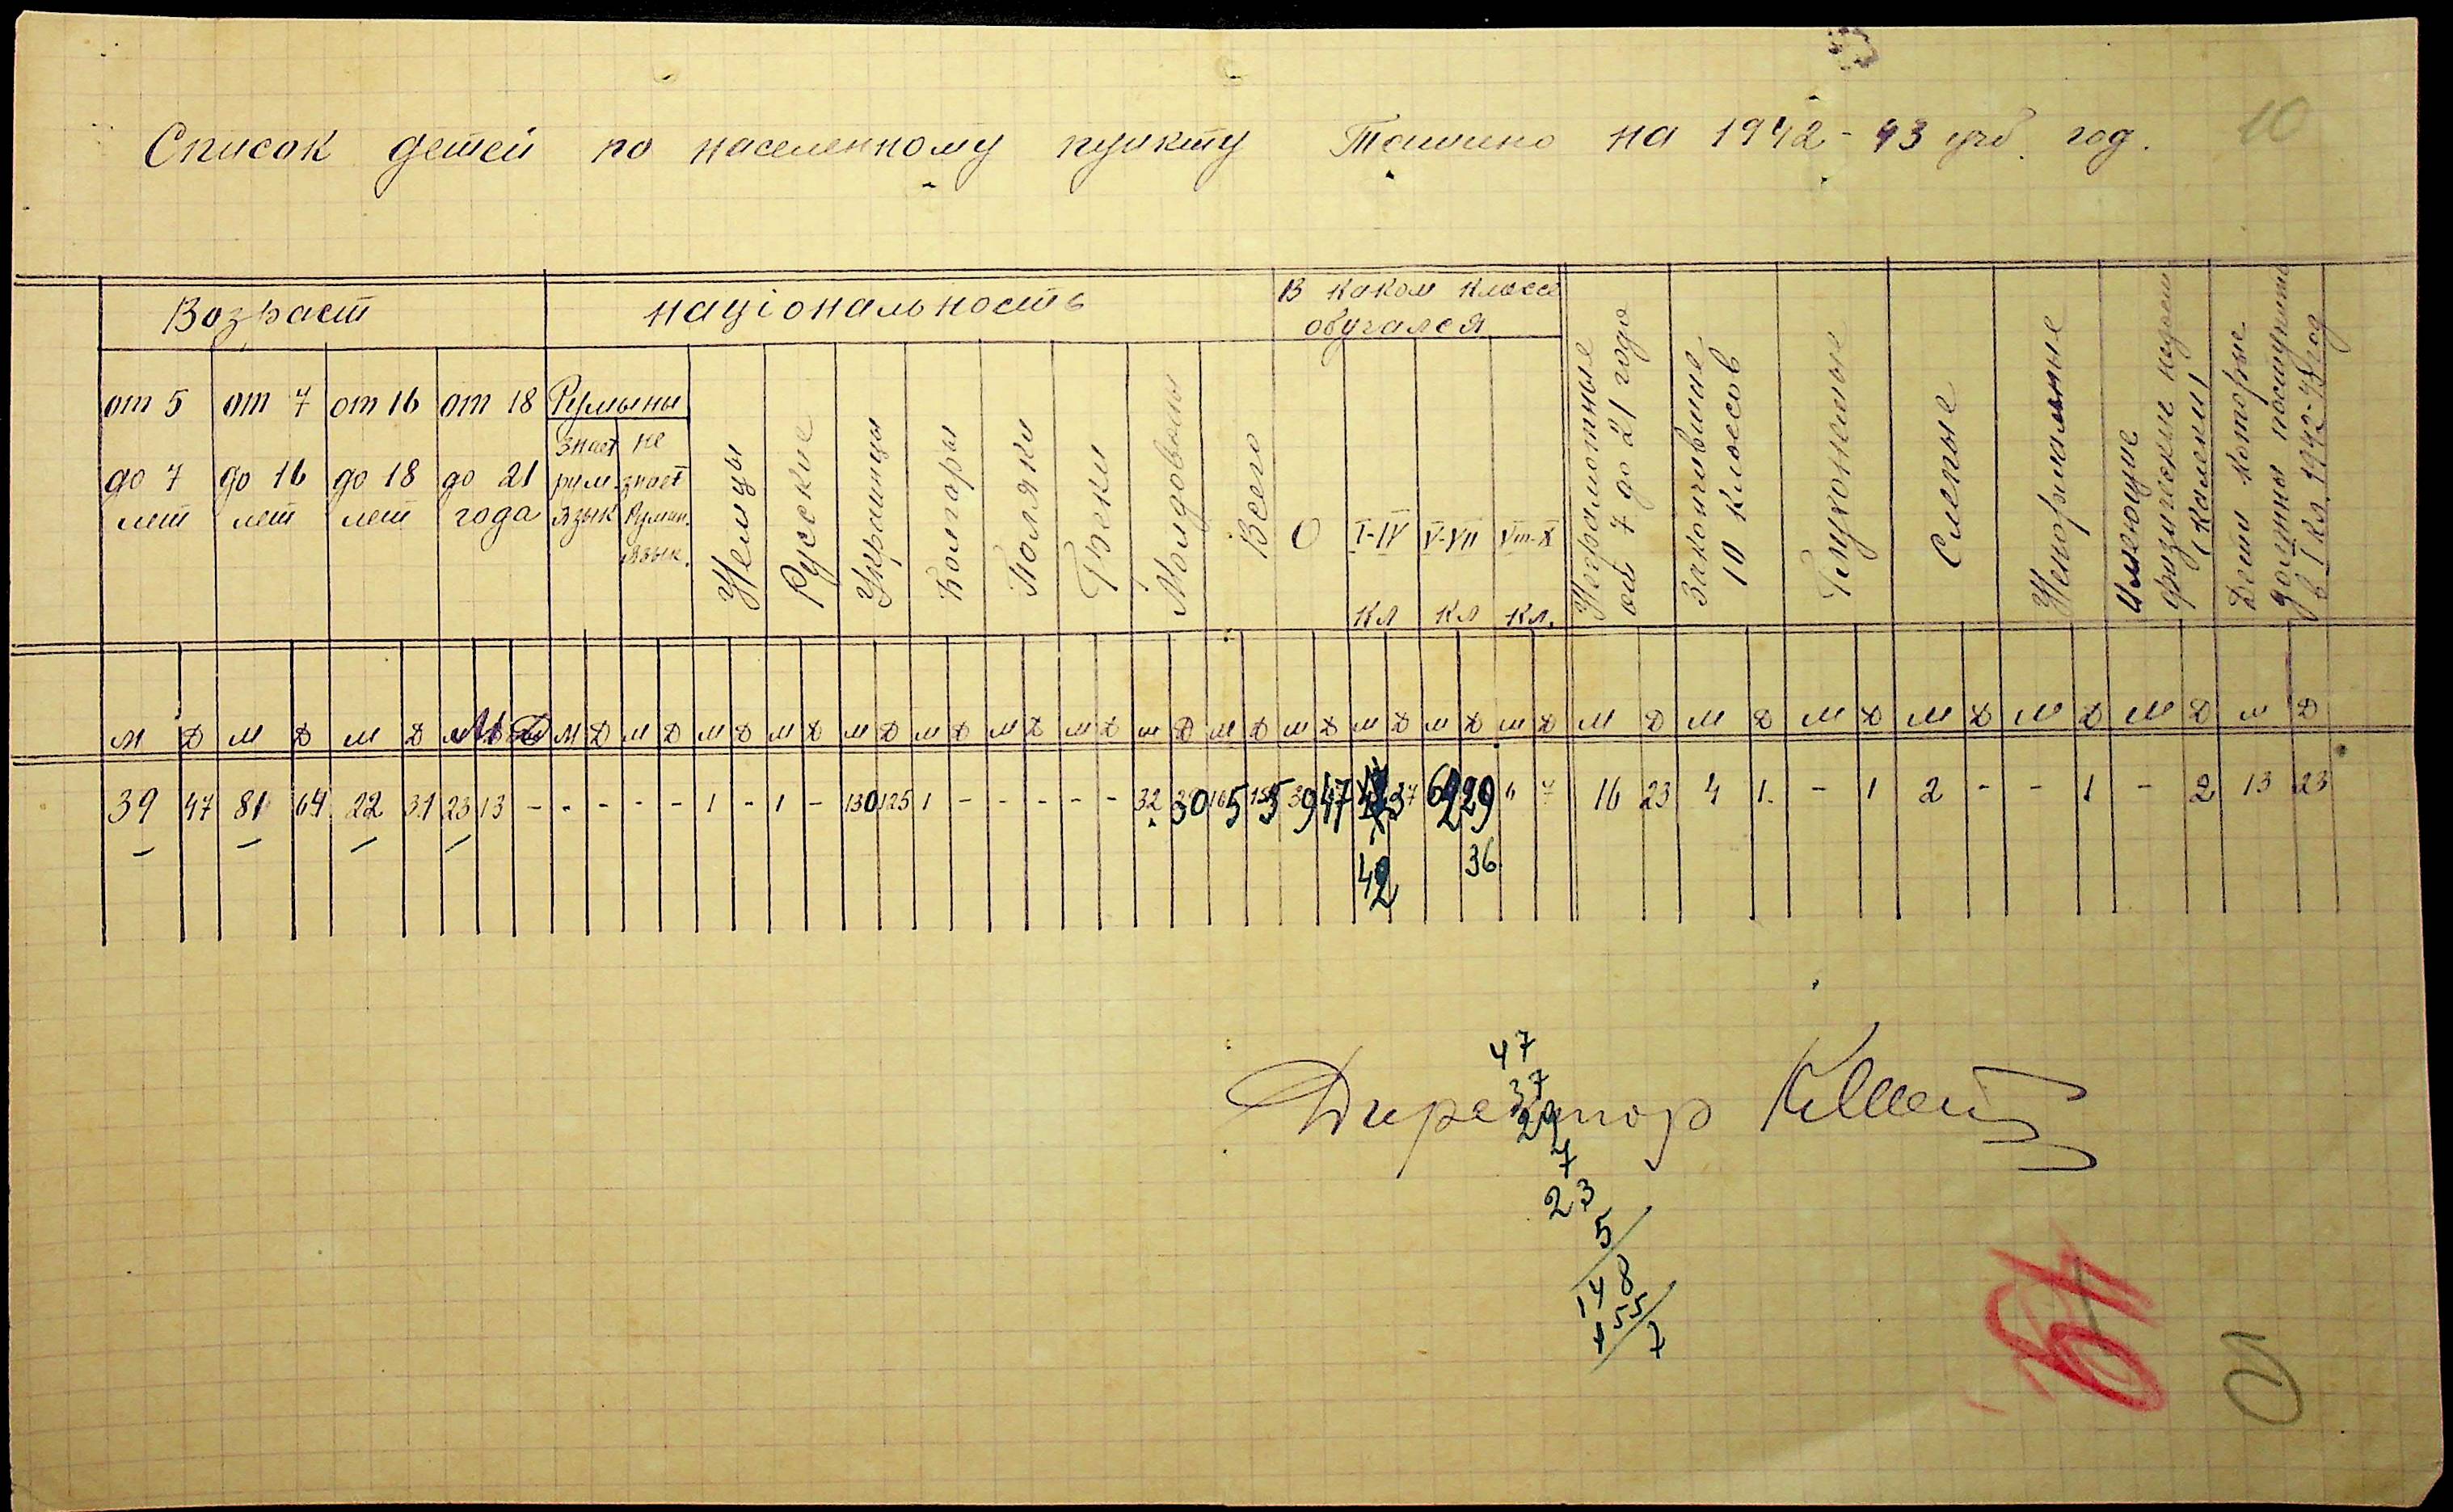 10
Список детей по населенному пункту Ташино на 1942-43 учб. год.
Возраст
національность
В каком классе обучался
от 5 до 7 лет
от 7 до 16 лет
от 16 до 18 лет
от 18 до 21 года
Румыны
знает рум. язык
не знает Румын. язык.
Немцы
Русские
Украинцы
Болгары
Поляки
Греки
Молдованы
Всего
О
I-IV кл
V-VII кл
VIII-X кл.
Неграмотные от 7 до 21 года
Закончившие 10 классов
Глухонемые
Слепые
Ненормальные
Имеющие физические недост (калеки)
Дети которые должны поступить в I кл. 1942-43 год
м Д м Д м Д М Д м Д м Д м Д м Д м Д м Д м Д м Д м Д м Д м Д м Д м Д м Д м Д м Д м Д м Д м Д м Д м Д
39 47 81 64 22 31 23 13 - - - - - 1 - 1 - 130 125 1 - - - - - 32 30 165 155 39 47 37 29 4 7 16 23 4 1. - 1 2 - - 1 - 2 13 23
42 36
Директор
47
37
29
7
23
5
148
155
7